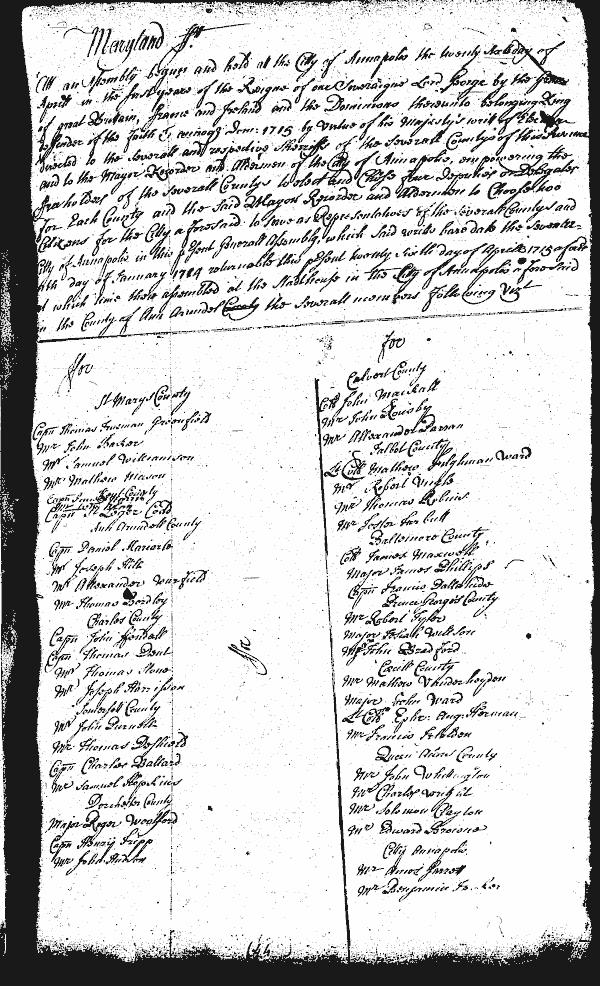 Maryland Ss
At an Assembly begun and held at the City of Annapolis the twenty day of
Aprill in the first year of the Reigne of our Soveraigne Lord George by the
of great Brittain, France and Ireland and the Dominions thereunto belonging King
Defender of the faith & annoq Dom: 1715 by Virtue of his Majesty's writ of
directed to the Severall and respective Sheriffs of the Severall Countys of this Province
and to the Mayor Recorder and Aldermen of the City of Annapolis, empowering the
freeholders of the Severall Countys to elect and Chuse four Deputies or Delegates
for Each County and the Said Mayor Recorder and Aldermen to Choose two
Citizens for the City aforesaid to Serve as Representatives of the Severall Countys and
City of Annapolis in this Generall Assembly, which Said writts bare date the
day of January 1714 returnable this twenty Sixth day of Aprill 1715
at which time there assembled at the Stadthouse in the City of Annapolis aforesaid
in the County of Ann Arundel County the Severall members following Vizt
for
St Marys County
Capn Thomas Trueman Greenfield
Mr John Baker
Mr Samuel Williamson
Mr Mathew Mason
Kent County
Capn St Leger Codd
Ann Arundell County
Capn Daniel Mariarte
Mr Joseph Hill
Mr Allexander Warfield
Mr Thomas Bordley
Charles County
Capn John Fendall
Capn Thomas Dent
Mr Thomas Stone
Mr Joseph Harrisson
Somersett County
Mr John Purnell
Mr Thomas Dashield
Capn Charles Ballard
Mr Samuel Hopkins
Dorchester County
Major Roger Woolford
Capn Henry Tripp
Mr John Hudson
for
Calvert County
Coll John Mackall
Mr John Rousby
Mr Allexander Parran
Talbot County
Lt Coll Mathew Tilghman Ward
Mr Robert
Mr Thomas Robins
Mr Foster
Baltemore County
Coll James Maxwell
Major James Phillips
Capn Francis
Prince Georges County
Mr Robert Tyler
Major Josiah Willson
Mr John Bradford
Cecill County
Mr Mathew Vanderheyden
Major John Ward
Lt Coll Ephr: Aug: Herman
Mr Francis
Queen Anns County
Mr John Whittington
Mr Charles Wright
Mr Solomon Clayton
Mr Edward Browne
City Annapolis
Mr Amos Garrett
Mr Benjamin